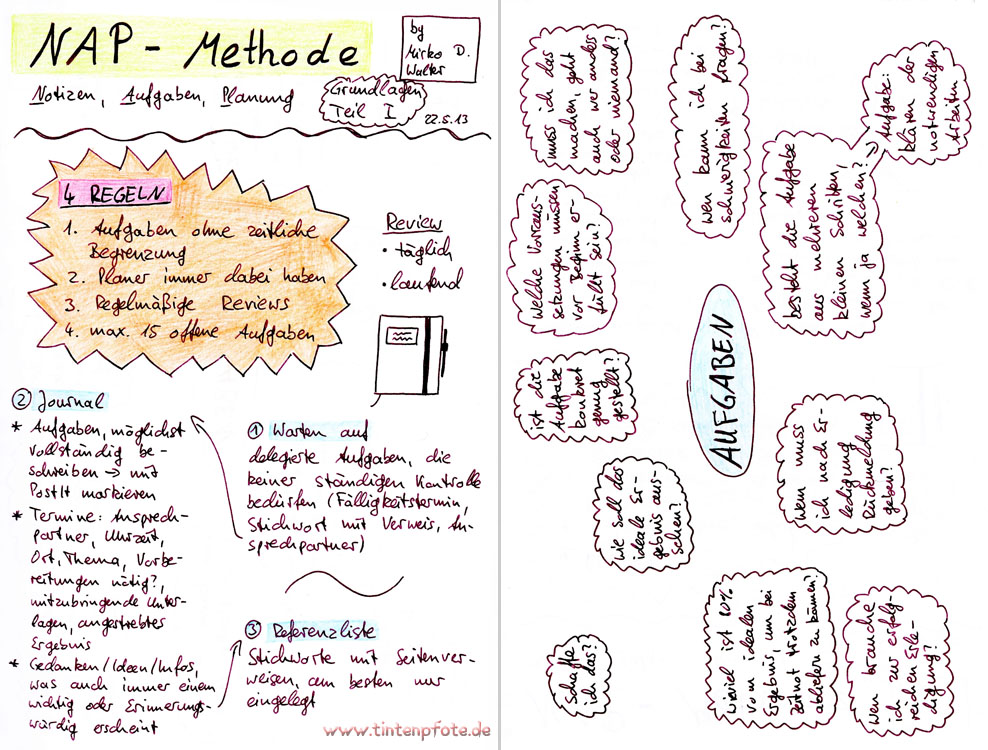 NAP - Methode
by
Mirko D.
Walter
Notizen, Aufgaben, Planung
Grundlagen
Teil I
22.5.13
4 REGELN
1. Aufgaben ohne zeitliche
Begrenzung
2. Planer immer dabei haben
3. Regelmäßige Reviews
4. max. 15 offene Aufgaben
Review
• täglich
• laufend
② Journal
* Aufgaben, möglichst
vollständig be-
schreiben → mit
PostIt markieren
* Termine: Ansprech-
partner, Uhrzeit,
Ort, Thema, Vorbe-
reitungen nötig?,
mitzubringende Unter-
lagen, angestrebtes
Ergebnis
* Gedanken/Ideen/Infos,
was auch immer einem
wichtig oder Erinnerungs-
würdig erscheint
① Warten auf
delegierte Aufgaben, die
keiner ständigen Kontrolle
bedürfen (Fälligkeitstermin,
Stichwort mit Verweis, An-
sprechpartner)
③ Referenzliste
Stichworte mit Seitenver-
weisen, am besten nur
eingelegt
www.tintenpfote.de
AUFGABEN
muss ich das
machen, geht
auch wer anders
oder niemand?
wen kann ich bei
schwierigkeiten fragen?
Aufgabe:
klären der
notwendigen
Arbeiten
besteht die Aufgabe
aus mehreren
kleinen Schritten,
wenn ja welchen?
Welche Voraus-
setzungen müssen
vor Beginn er-
füllt sein?
ist die
Aufgabe
konkret
genug
gestellt?
wie soll das
ideale Er-
gebnis aus-
sehen?
Wem muss
ich nach Er-
ledigung
Rückmeldung
geben?
Schaffe
ich das?
Wieviel ist 60%
vom idealen
Ergebnis, um bei
Zeitnot trotzdem
abliefern zu können?
Wen brauche
ich zur erfolg-
reichen Erle-
digung?